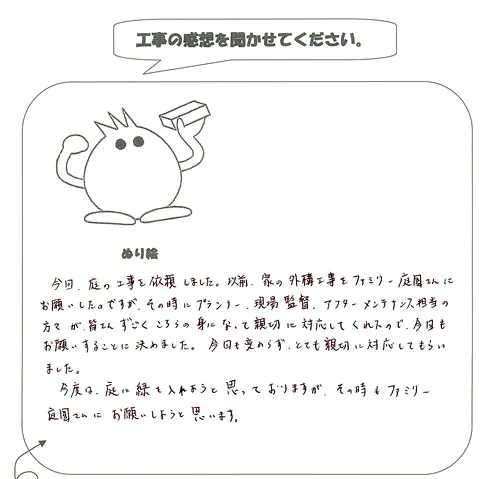 工事の感想を聞かせてください。
ぬり絵
今回、庭の工事を依頼しました。以前、家の外構工事をファミリー庭園さんに
お願いしたのですが、その時にプランナー、現場監督、アフターメンテナンス担当の
方々が、皆さんすごくこちらの身になって親切に対応してくれたので、今回も
お願いすることに決めました。今回も変わらず、とても親切に対応してもらい
ました。
今度は、庭に緑を入れようと思っておりますが、その時もファミリー
庭園さんにお願いしようと思います。